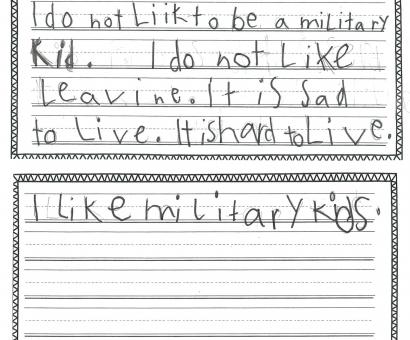 I do not Liik to be a military
Kid. I do not Like
Leavine. It is Sad
to Live. It is hard to Live.
I Like military kids.